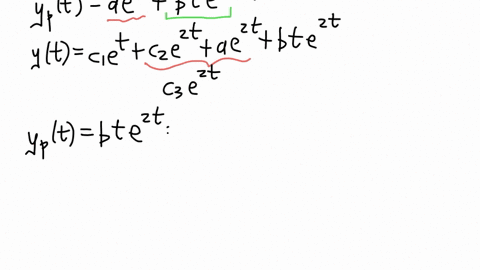 y_p(t) = ae + bte
y(t) = c₁eᵗ + c₂e²ᵗ + ae²ᵗ + bte²ᵗ
c₃e²ᵗ
y_p(t) = bte²ᵗ: